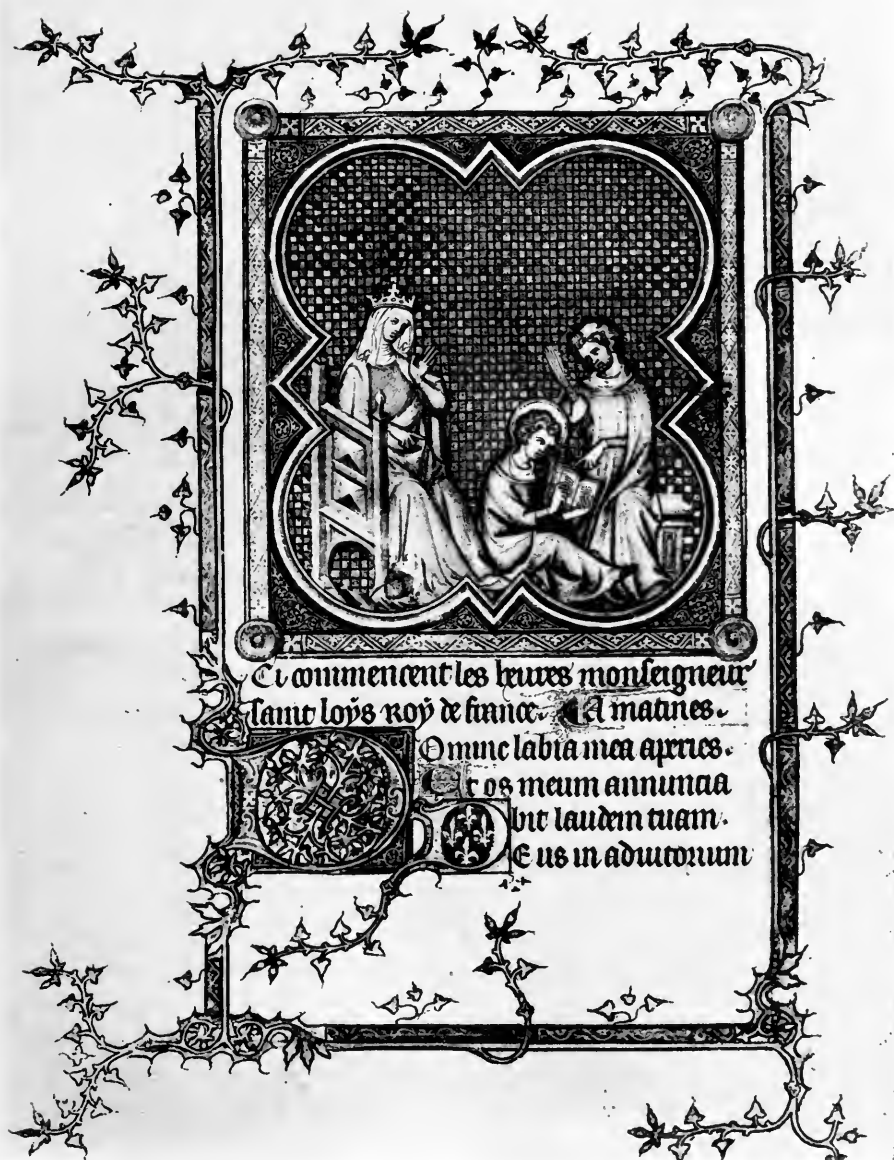 Ci commencent les heures monseigneur
saint loÿs roÿ de france. A matines.
Domine labia mea aperies.
Et os meum annuncia
bit laudem tuam.
Deus in adiutorium